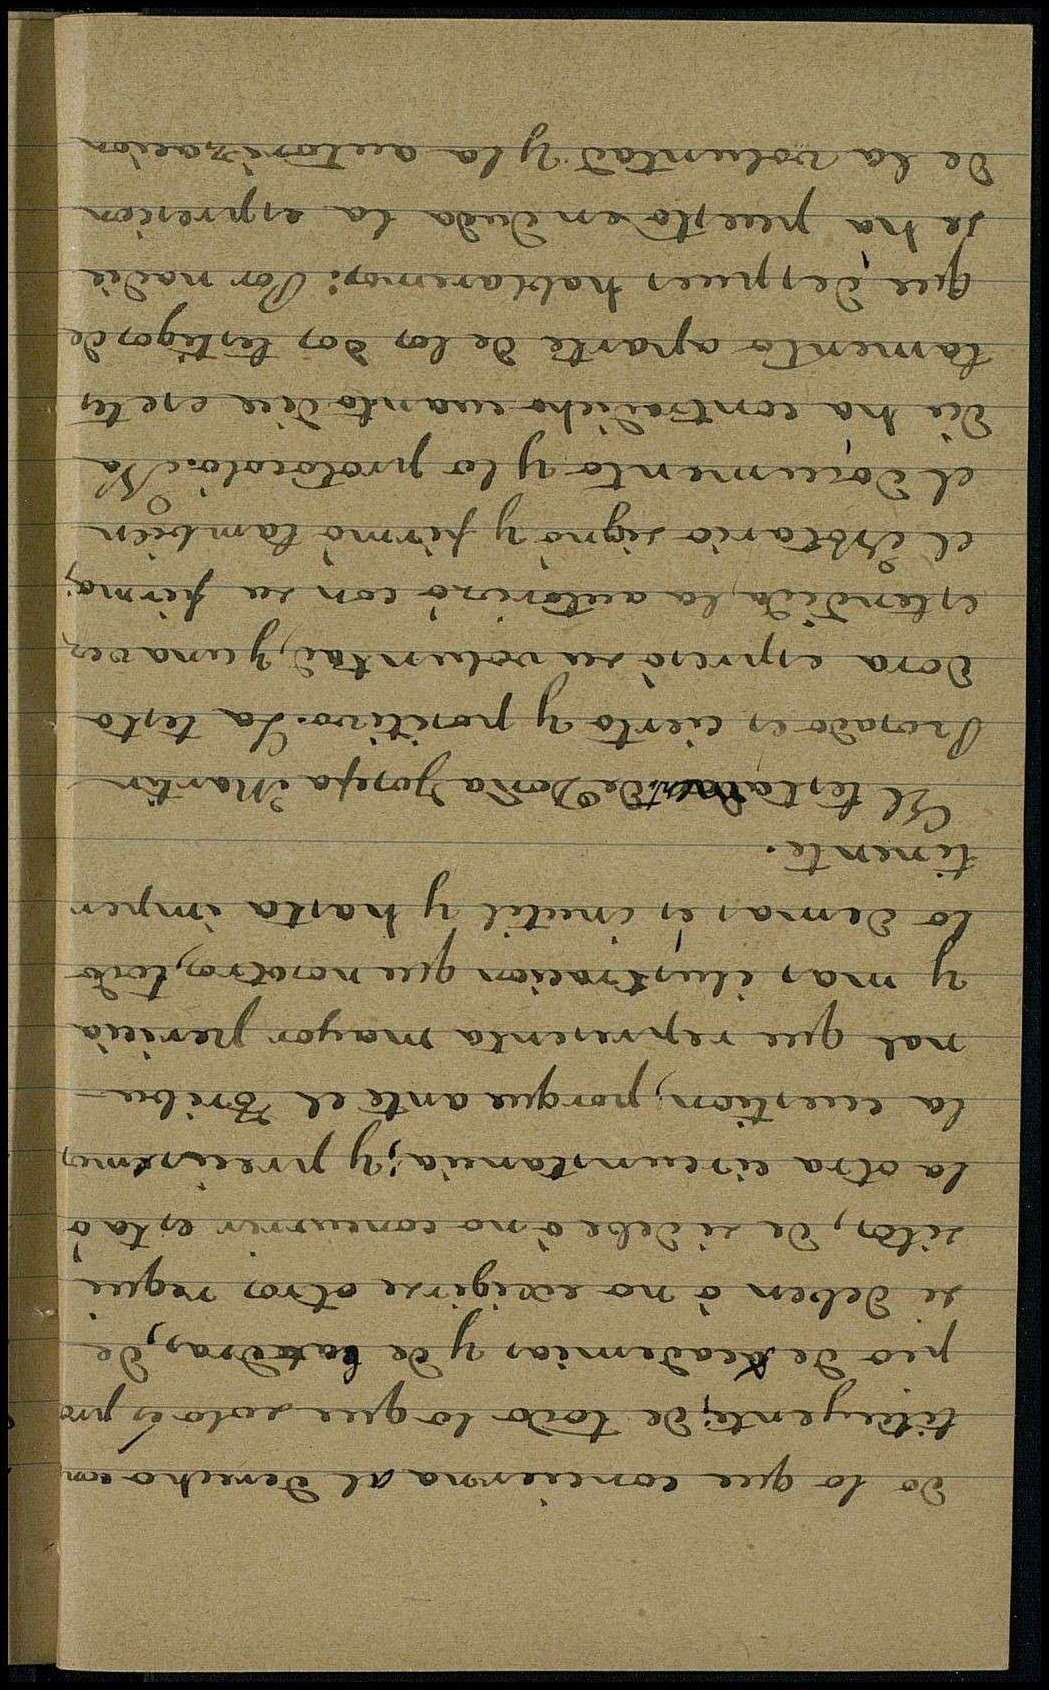 do lo que concierna al derecho con
tituyente; de todo lo que solo es pro
pio de Academias y de Catedras, de
si deben ò no exigirse otros requi
sitos, de si debe ò no concurrir esta ò
la otra circunstancia; y precisemos
la cuestion, porque ante el Tribu-
nal que representa mayor pericia
y mas ilustracion que nosotros, todo
lo demas es inutil y hasta imper
tinente.
El testamto de Doña Josefa Martin
Prosado es cierto y positivo. La testa
dora espresò su voluntad, y una vez
estendida, la autorizò con su firma;
el Notario signò y firmò tambien
el documento y lo protocolò. Na
die ha contradicho cuanto dice ese tes
tamento aparte de los dos testigos de
que despues hablaremos: Por nadie
se ha puesto en duda la espresion
de la voluntad y la autorizacion